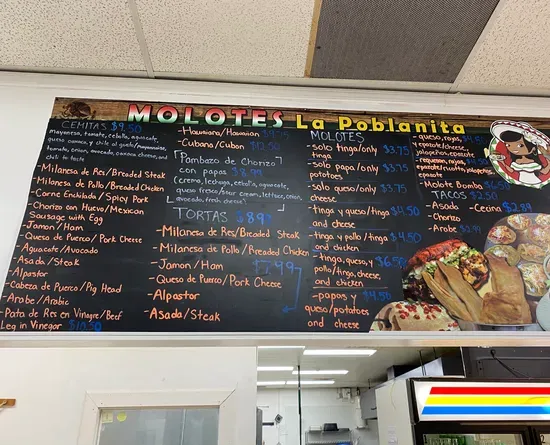 MOLOTES La Poblanita
CEMITAS $9.50
Mayonesa, tomate, cebolla, aguacate,
queso oaxaca, y chile al gusto/mayonnaise,
tomato, onion, avocado, oaxaca cheese, and
chili to taste
-Milanesa de Res/Breaded Steak
-Milanesa de Pollo/Breaded Chicken
-Carne Enchilada/Spicy Pork
-Chorizo con Huevo/Mexican
Sausage with Egg
-Jamon/Ham
-Queso de Puerco/Pork Cheese
-Aguacate/Avocado
-Asada/Steak
-Alpastor
-Cabeza de Puerco/Pig Head
-Arabe/Arabic
-Pata de Res en Vinagre/Beef
Leg in Vinegar
-Hawaiiana/Hawaiian
-Cubana/Cuban $12.50
Pambazo de Chorizo
con papas $8.99
(crema, lechuga, cebolla, aguacate,
queso fresco/sour cream, lettuce, onion,
avocado, fresh cheese)
TORTAS
-Milanesa de Res/Breaded Steak
-Milanesa de Pollo/Breaded Chicken
-Jamon/Ham
-Queso de Puerco/Pork Cheese
-Alpastor
-Asada/Steak
MOLOTES
-solo tinga/only $3.75
tinga
-solo papa/only $3.75
potatoes
-solo queso/only $3.75
cheese
-tinga y queso/tinga $4.50
and cheese
-tinga y pollo/tinga $4.50
and chicken
-tinga, queso, y $6.50
pollo/tinga, cheese,
and chicken
-papas y $4.50
queso/potatoes
and cheese
-queso, rajas,
y epazote/cheese,
jalapeños, epazote
-requeson, rajas,
epazote/ricotta, jalapeños,
epazote
-Molote Bombas
TACOS $2.50
-Asada -Cecina $2.99
-Chorizo
-Arabe $2.99